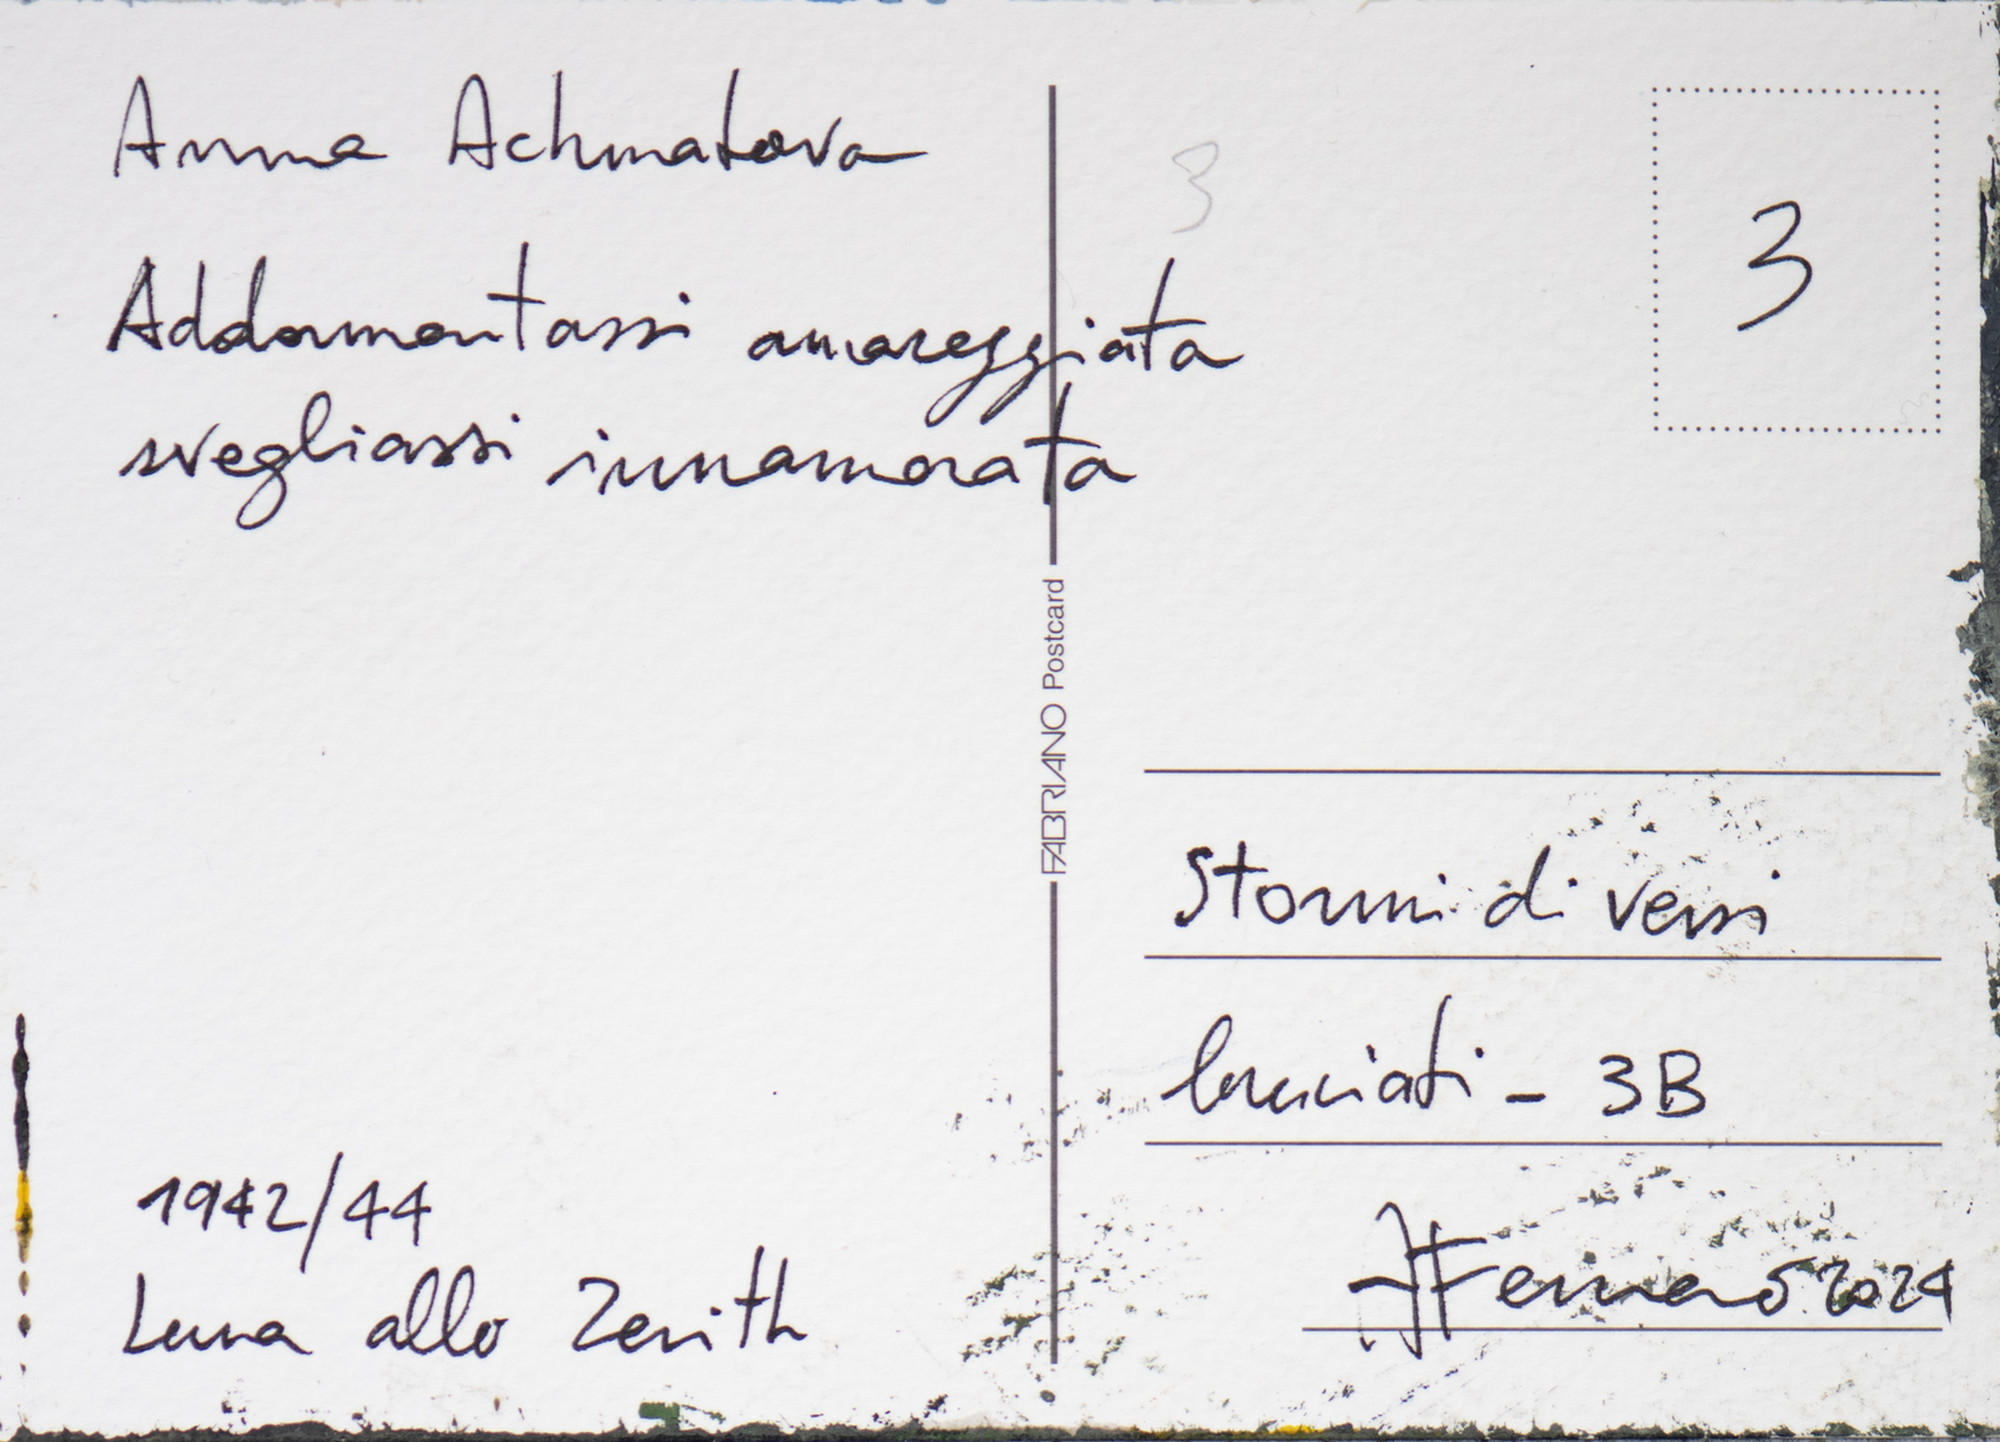 Anna Achmatova
Addormentassi amareggiata
svegliassi innamorata
1942/44
Luna allo Zenith
FABRIANO Postcard
3
3
Stormi di versi
bruciati - 3B
2024